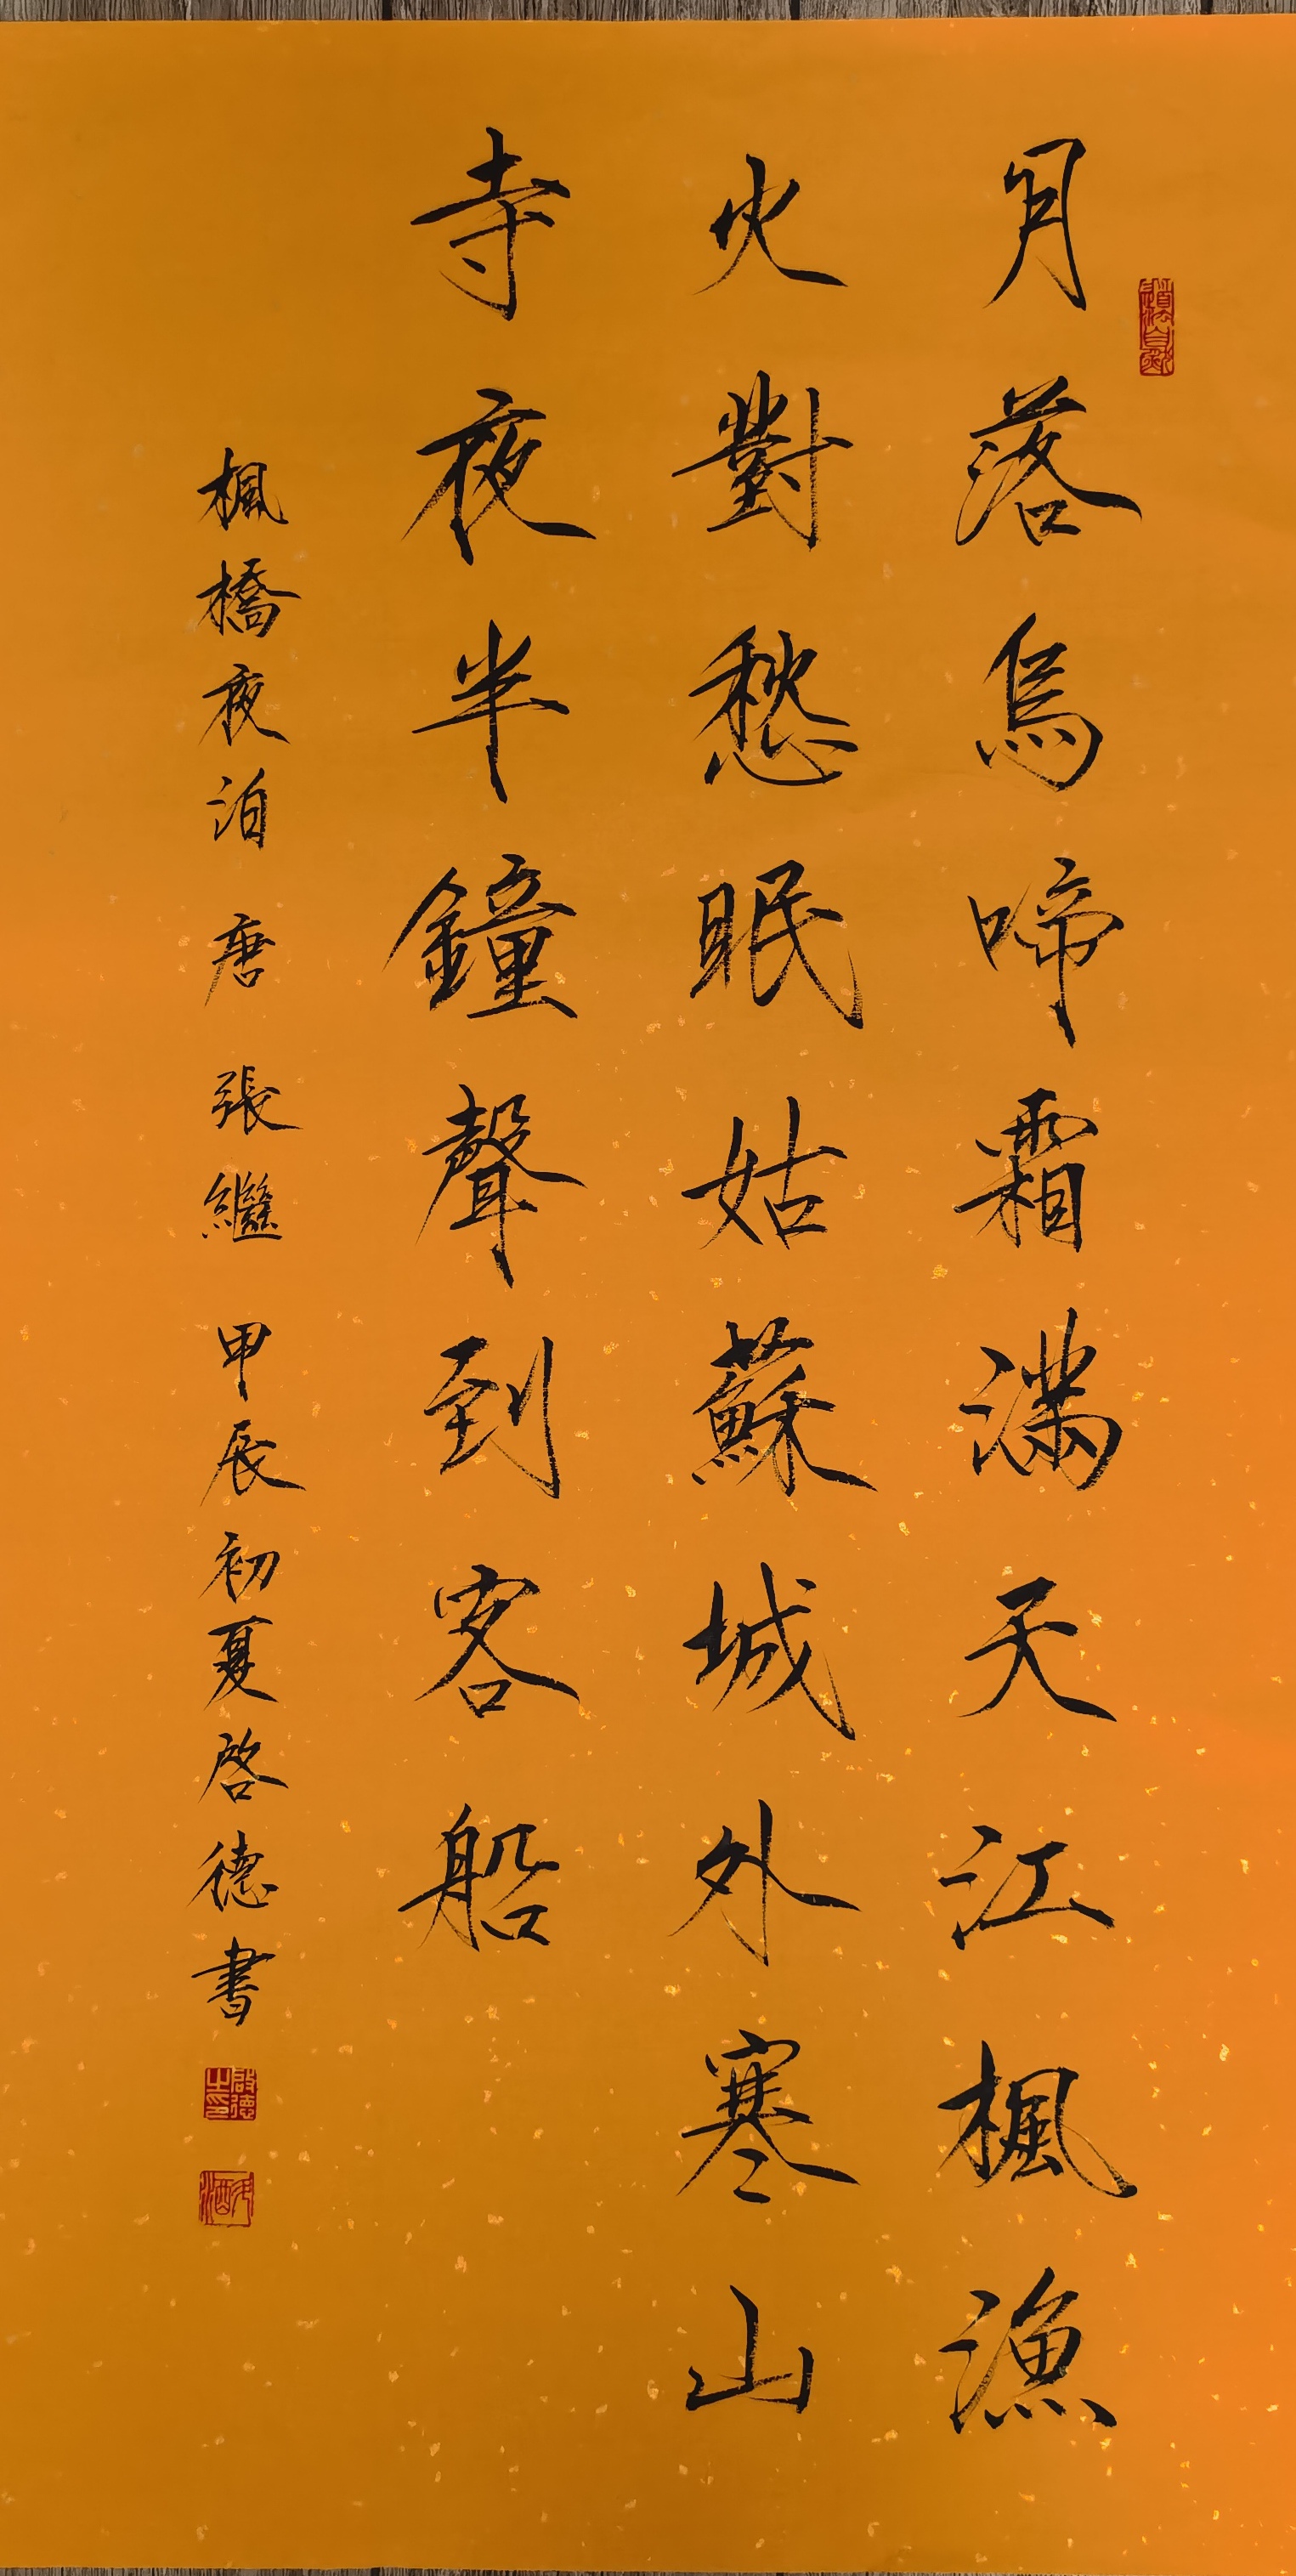 月落烏啼霜滿天江楓漁
火對愁眠姑蘇城外寒山
寺夜半鐘聲到客船
楓橋夜泊 唐 張繼 甲辰初夏啓德書
道法自然
啟德之印